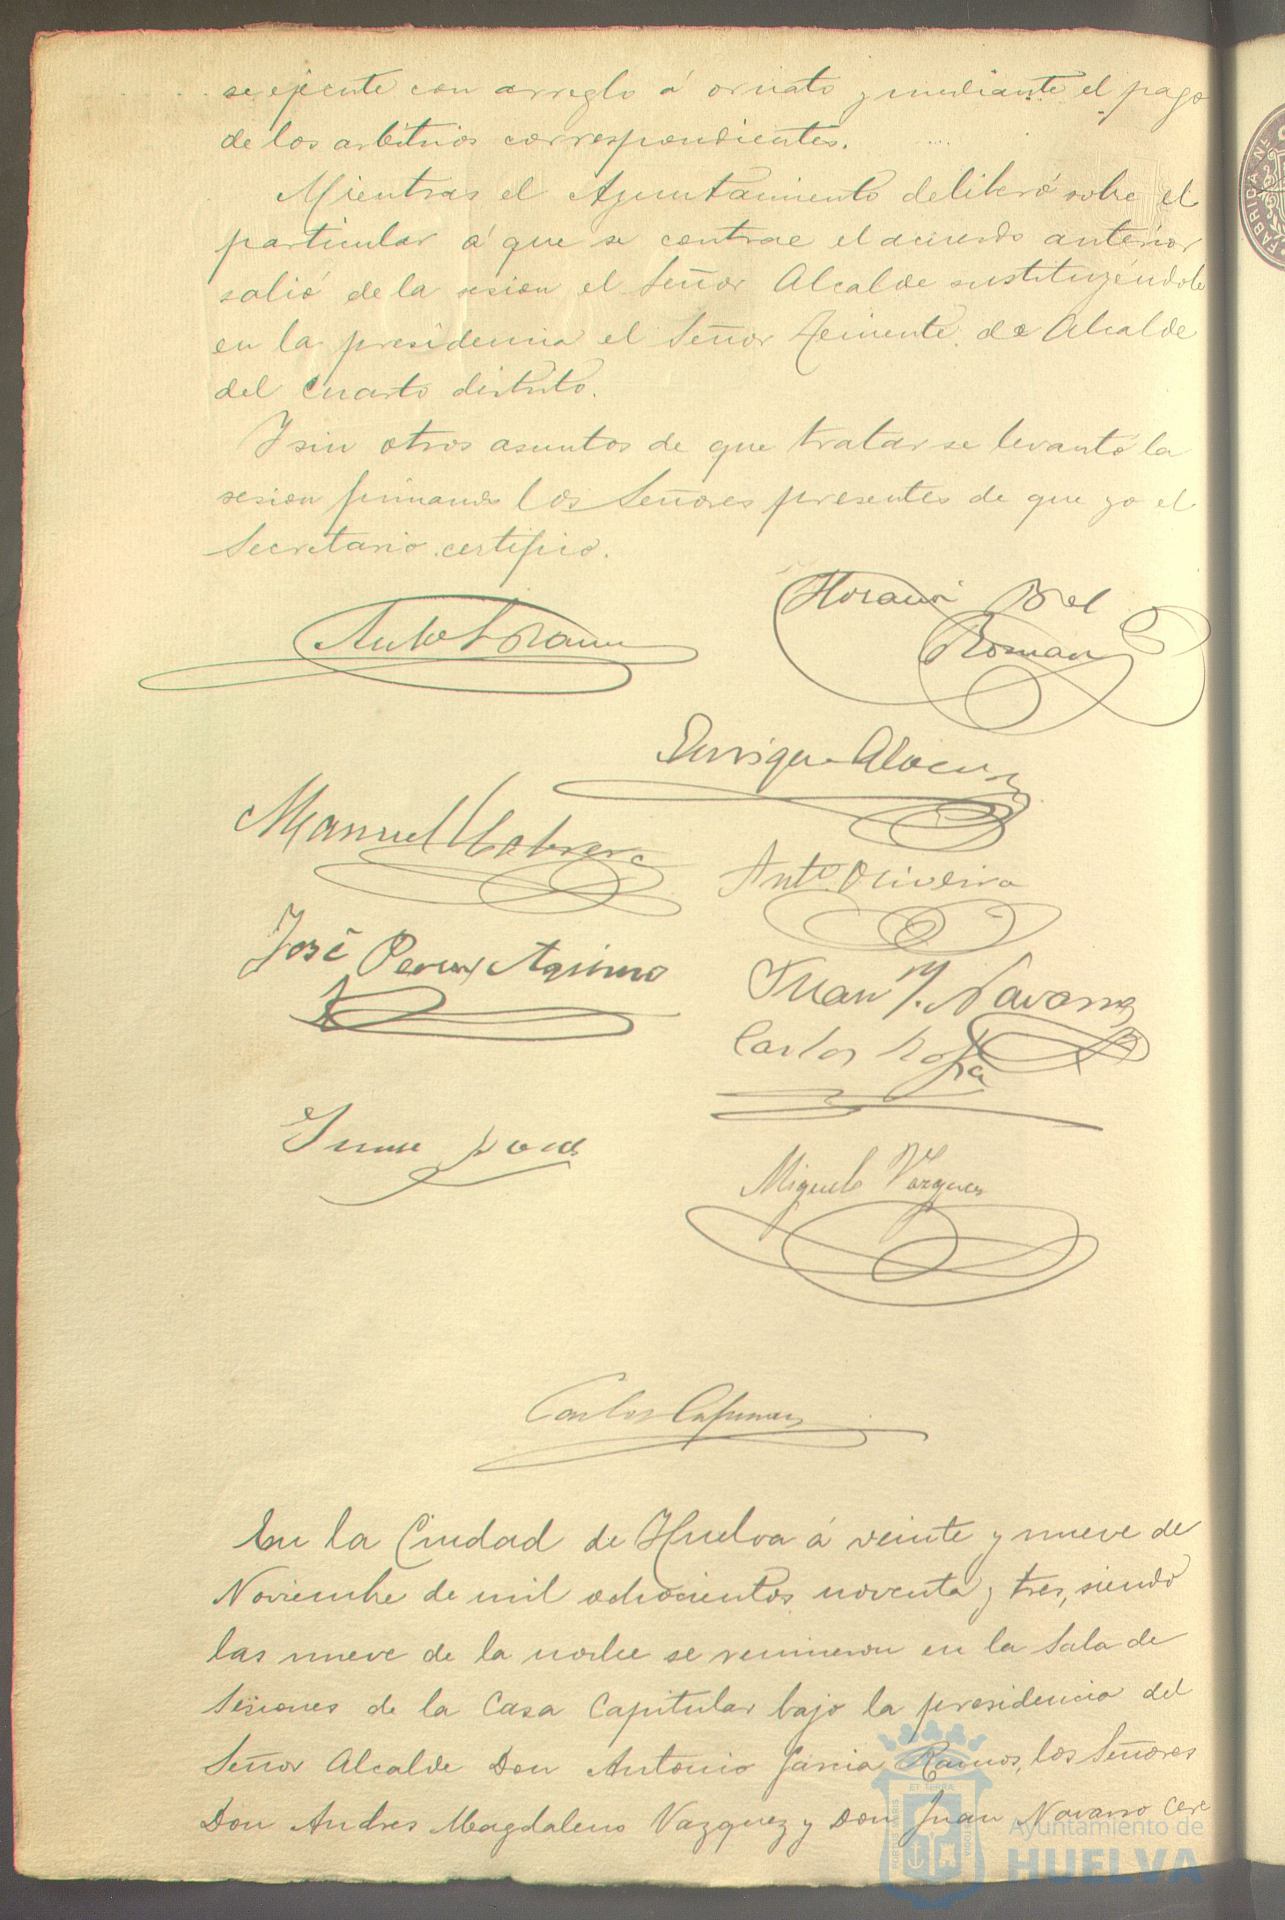 se ejecute con arreglo á ornato y mediante el pago
de los arbitrios correspondientes.
Mientras el Ayuntamiento deliberó sobre el
particular á que se contrae el acuerdo anterior
salió de la sesion el Señor Alcalde sustituyéndole
en la presidencia el Señor Teniente de Alcalde
del cuarto distrito.
Y sin otros asuntos de que tratar se levantó la
sesion firmando los Señores presentes de que yo el
Secretario certifico.
Horacio Bel
Roman
Enrique
Manuel Cabrera
Antº Oliveira
José Perez Aquino
Juan M. Navarro
Carlos
Miguel Vazquez
Carlos
En la Ciudad de Huelva á veinte y nueve de
Noviembre de mil ochocientos noventa y tres, siendo
las nueve de la noche se reunieron en la Sala de
Sesiones de la Casa Capitular bajo la presidencia del
Señor Alcalde Don Antonio Garcia Ramos, los Señores
Don Andres Magdaleno Vazquez y Don Juan Navarro
Ayuntamiento de
HUELVA